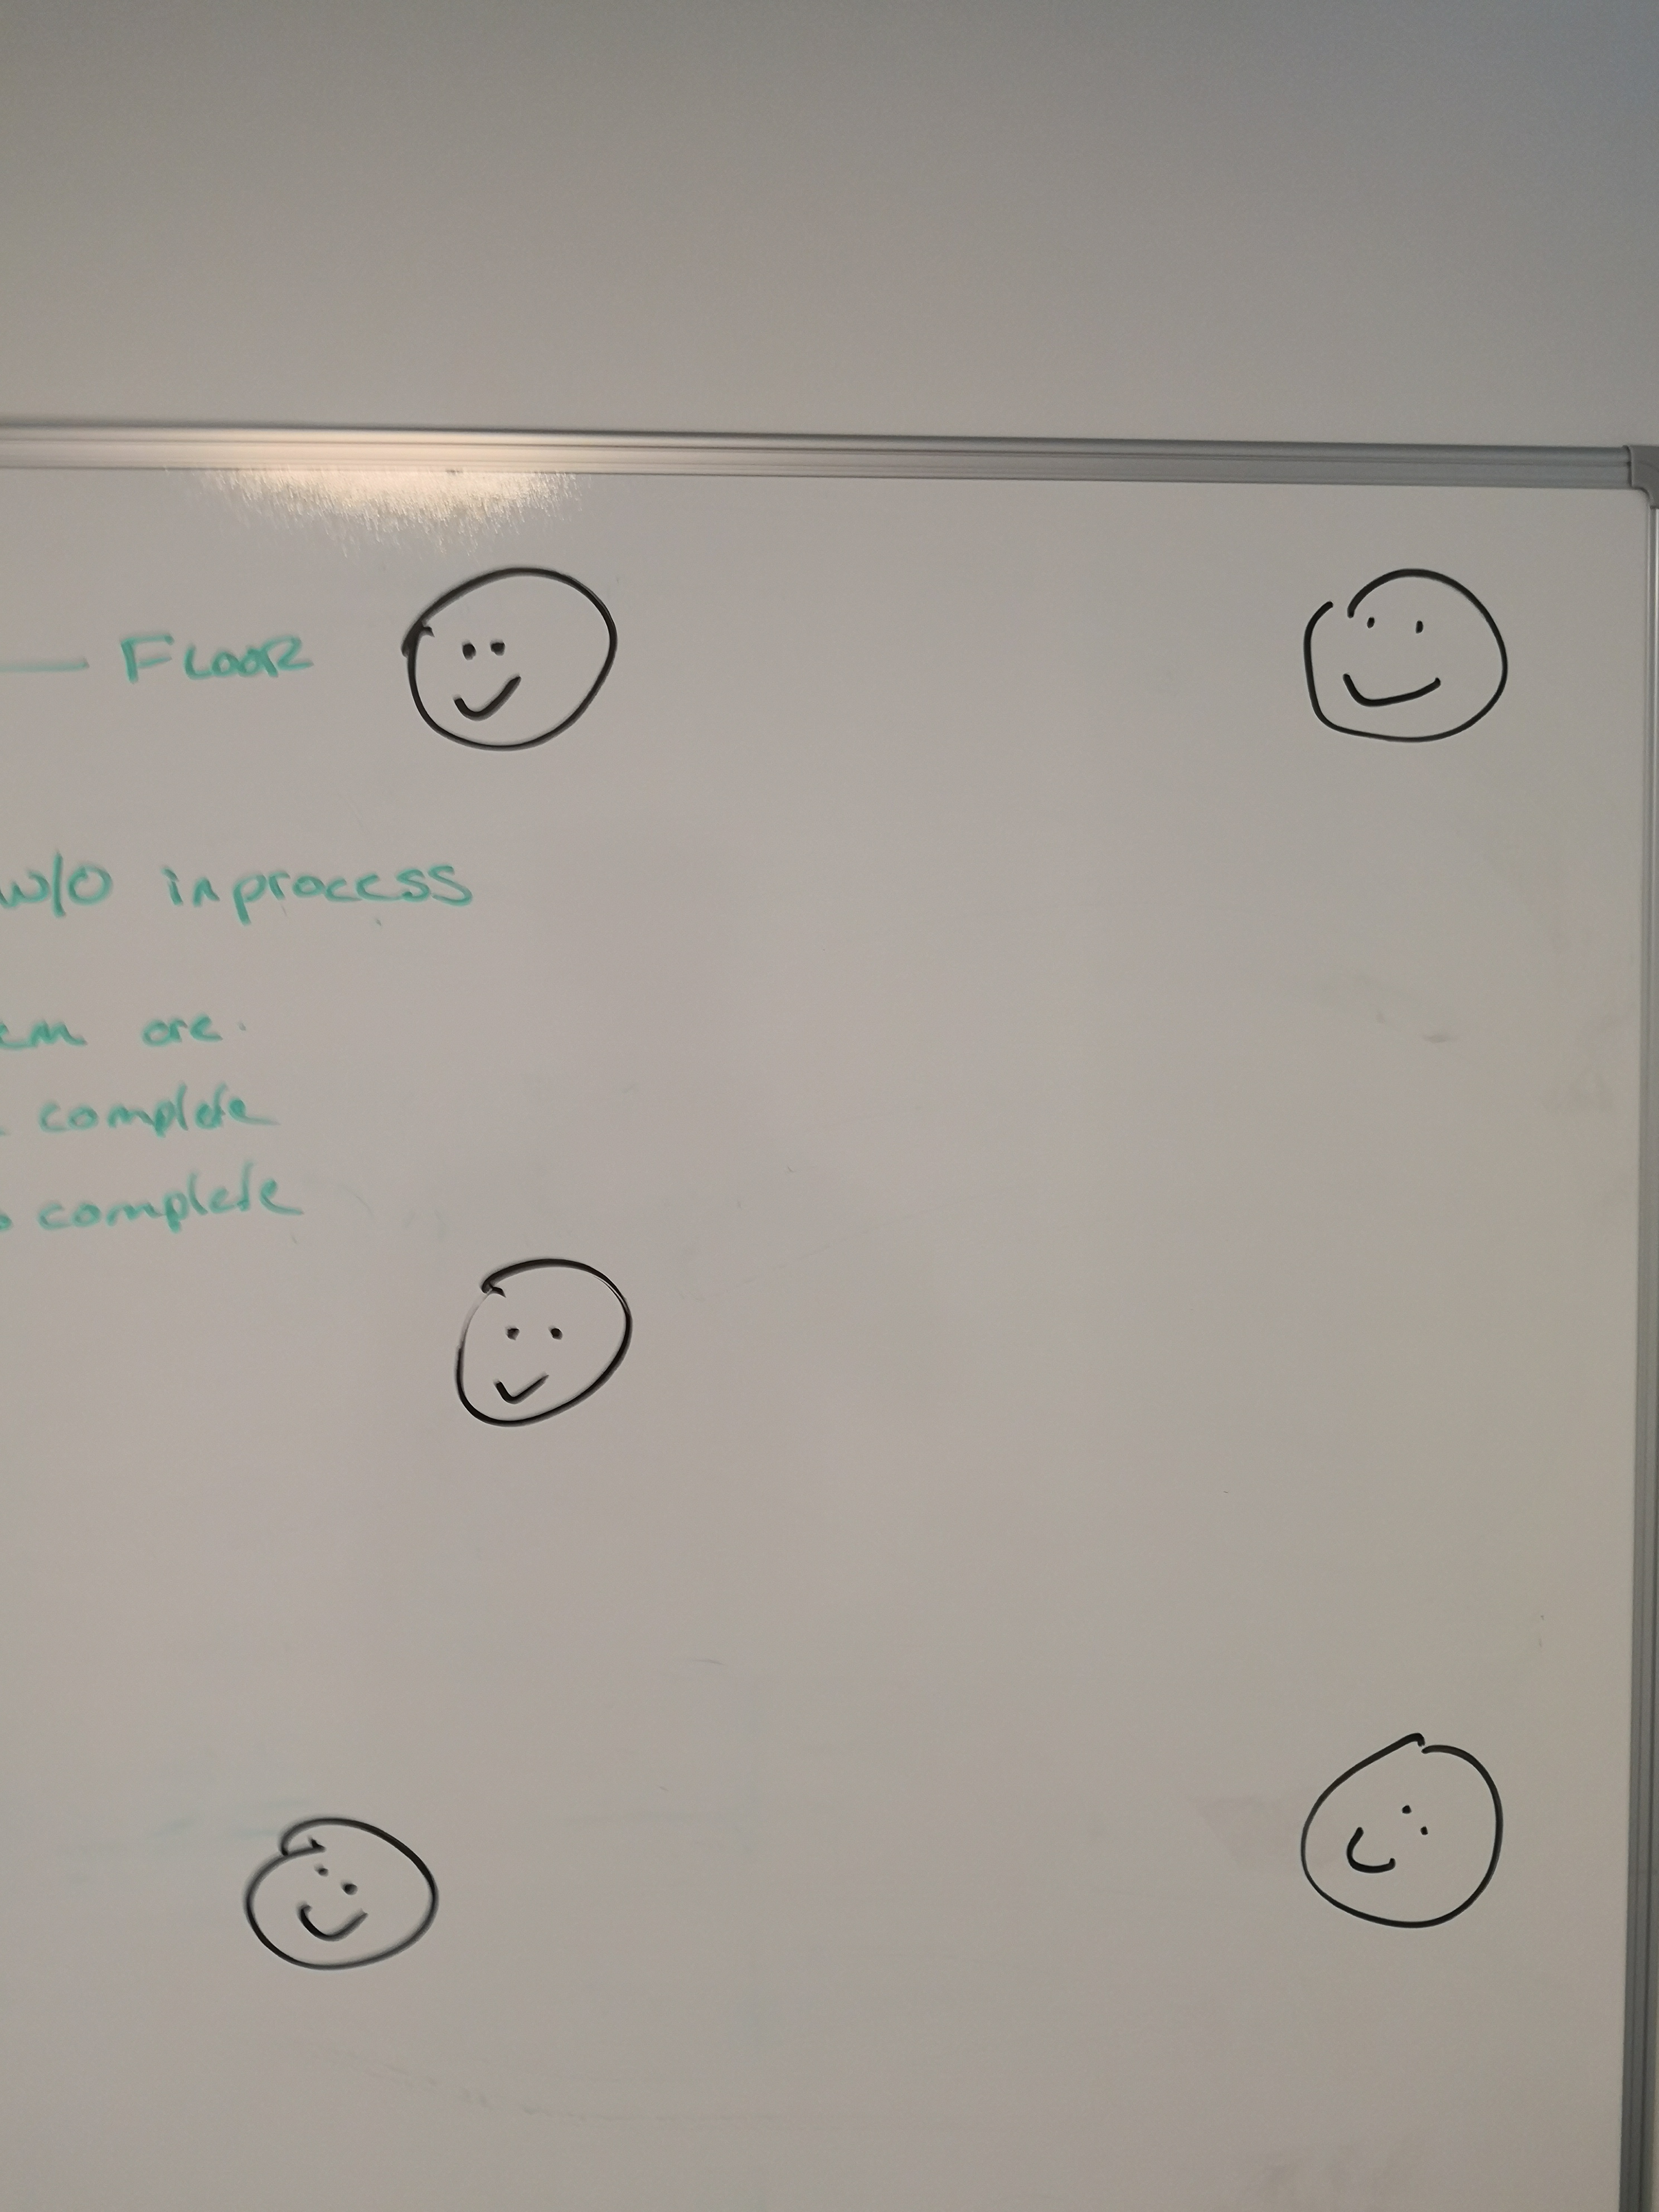 FLOOR
w/o inprocess
are.
complete
complete